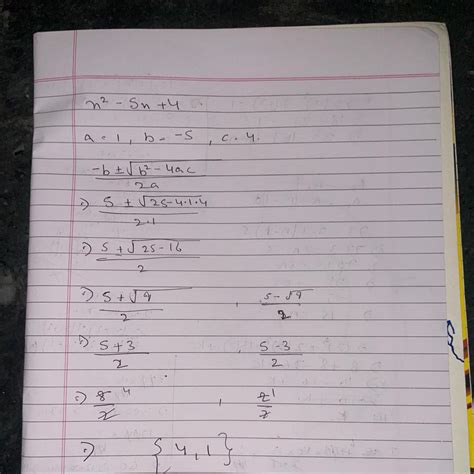 x² - 5x + 4
a = 1, b = -5, c = 4.
(-b ± √(b² - 4ac))/2a
⇒) (5 ± √(25 - 4·1·4))/2·1
⇒) (5 ± √(25 - 16))/2
⇒) (5 + √9)/2 , (5 - √9)/2
⇒) (5 + 3)/2 , (5 - 3)/2
⇒) 8/2 4 , 2/2 1
⇒) {4, 1}